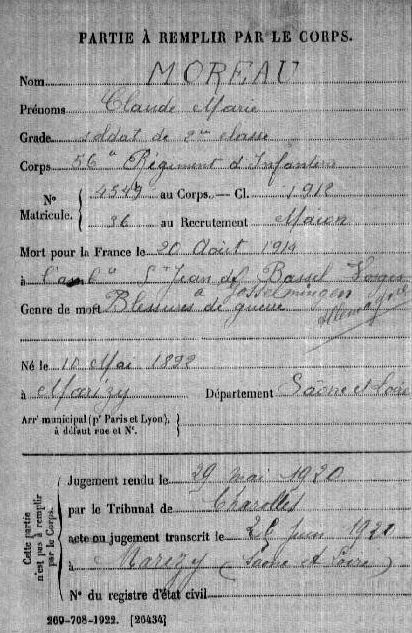 PARTIE À REMPLIR PAR LE CORPS.
Nom MOREAU
Prénoms Claude Marie
Grade soldat de 2me classe
Corps 56e Régiment d'Infanterie
N° Matricule. 4549 au Corps. — Cl. 1912
36 au Recrutement Macon
Mort pour la France le 20 Août 1914
à St Jean de Bassel Vosges
à Gosselmingen
Genre de mort Blessures de guerre
Né le Mai 1892
à Marizy Département Saône et Loire
Arr^t municipal (p^r Paris et Lyon),
à défaut rue et N°.
Cette partie n'est pas à remplir par le Corps.
Jugement rendu le 29 mai 1920
par le Tribunal de Charolles
acte ou jugement transcrit le Juin 1920
à Marizy (Saone et Loire)
N° du registre d'état civil
269-708-1922. [26434]